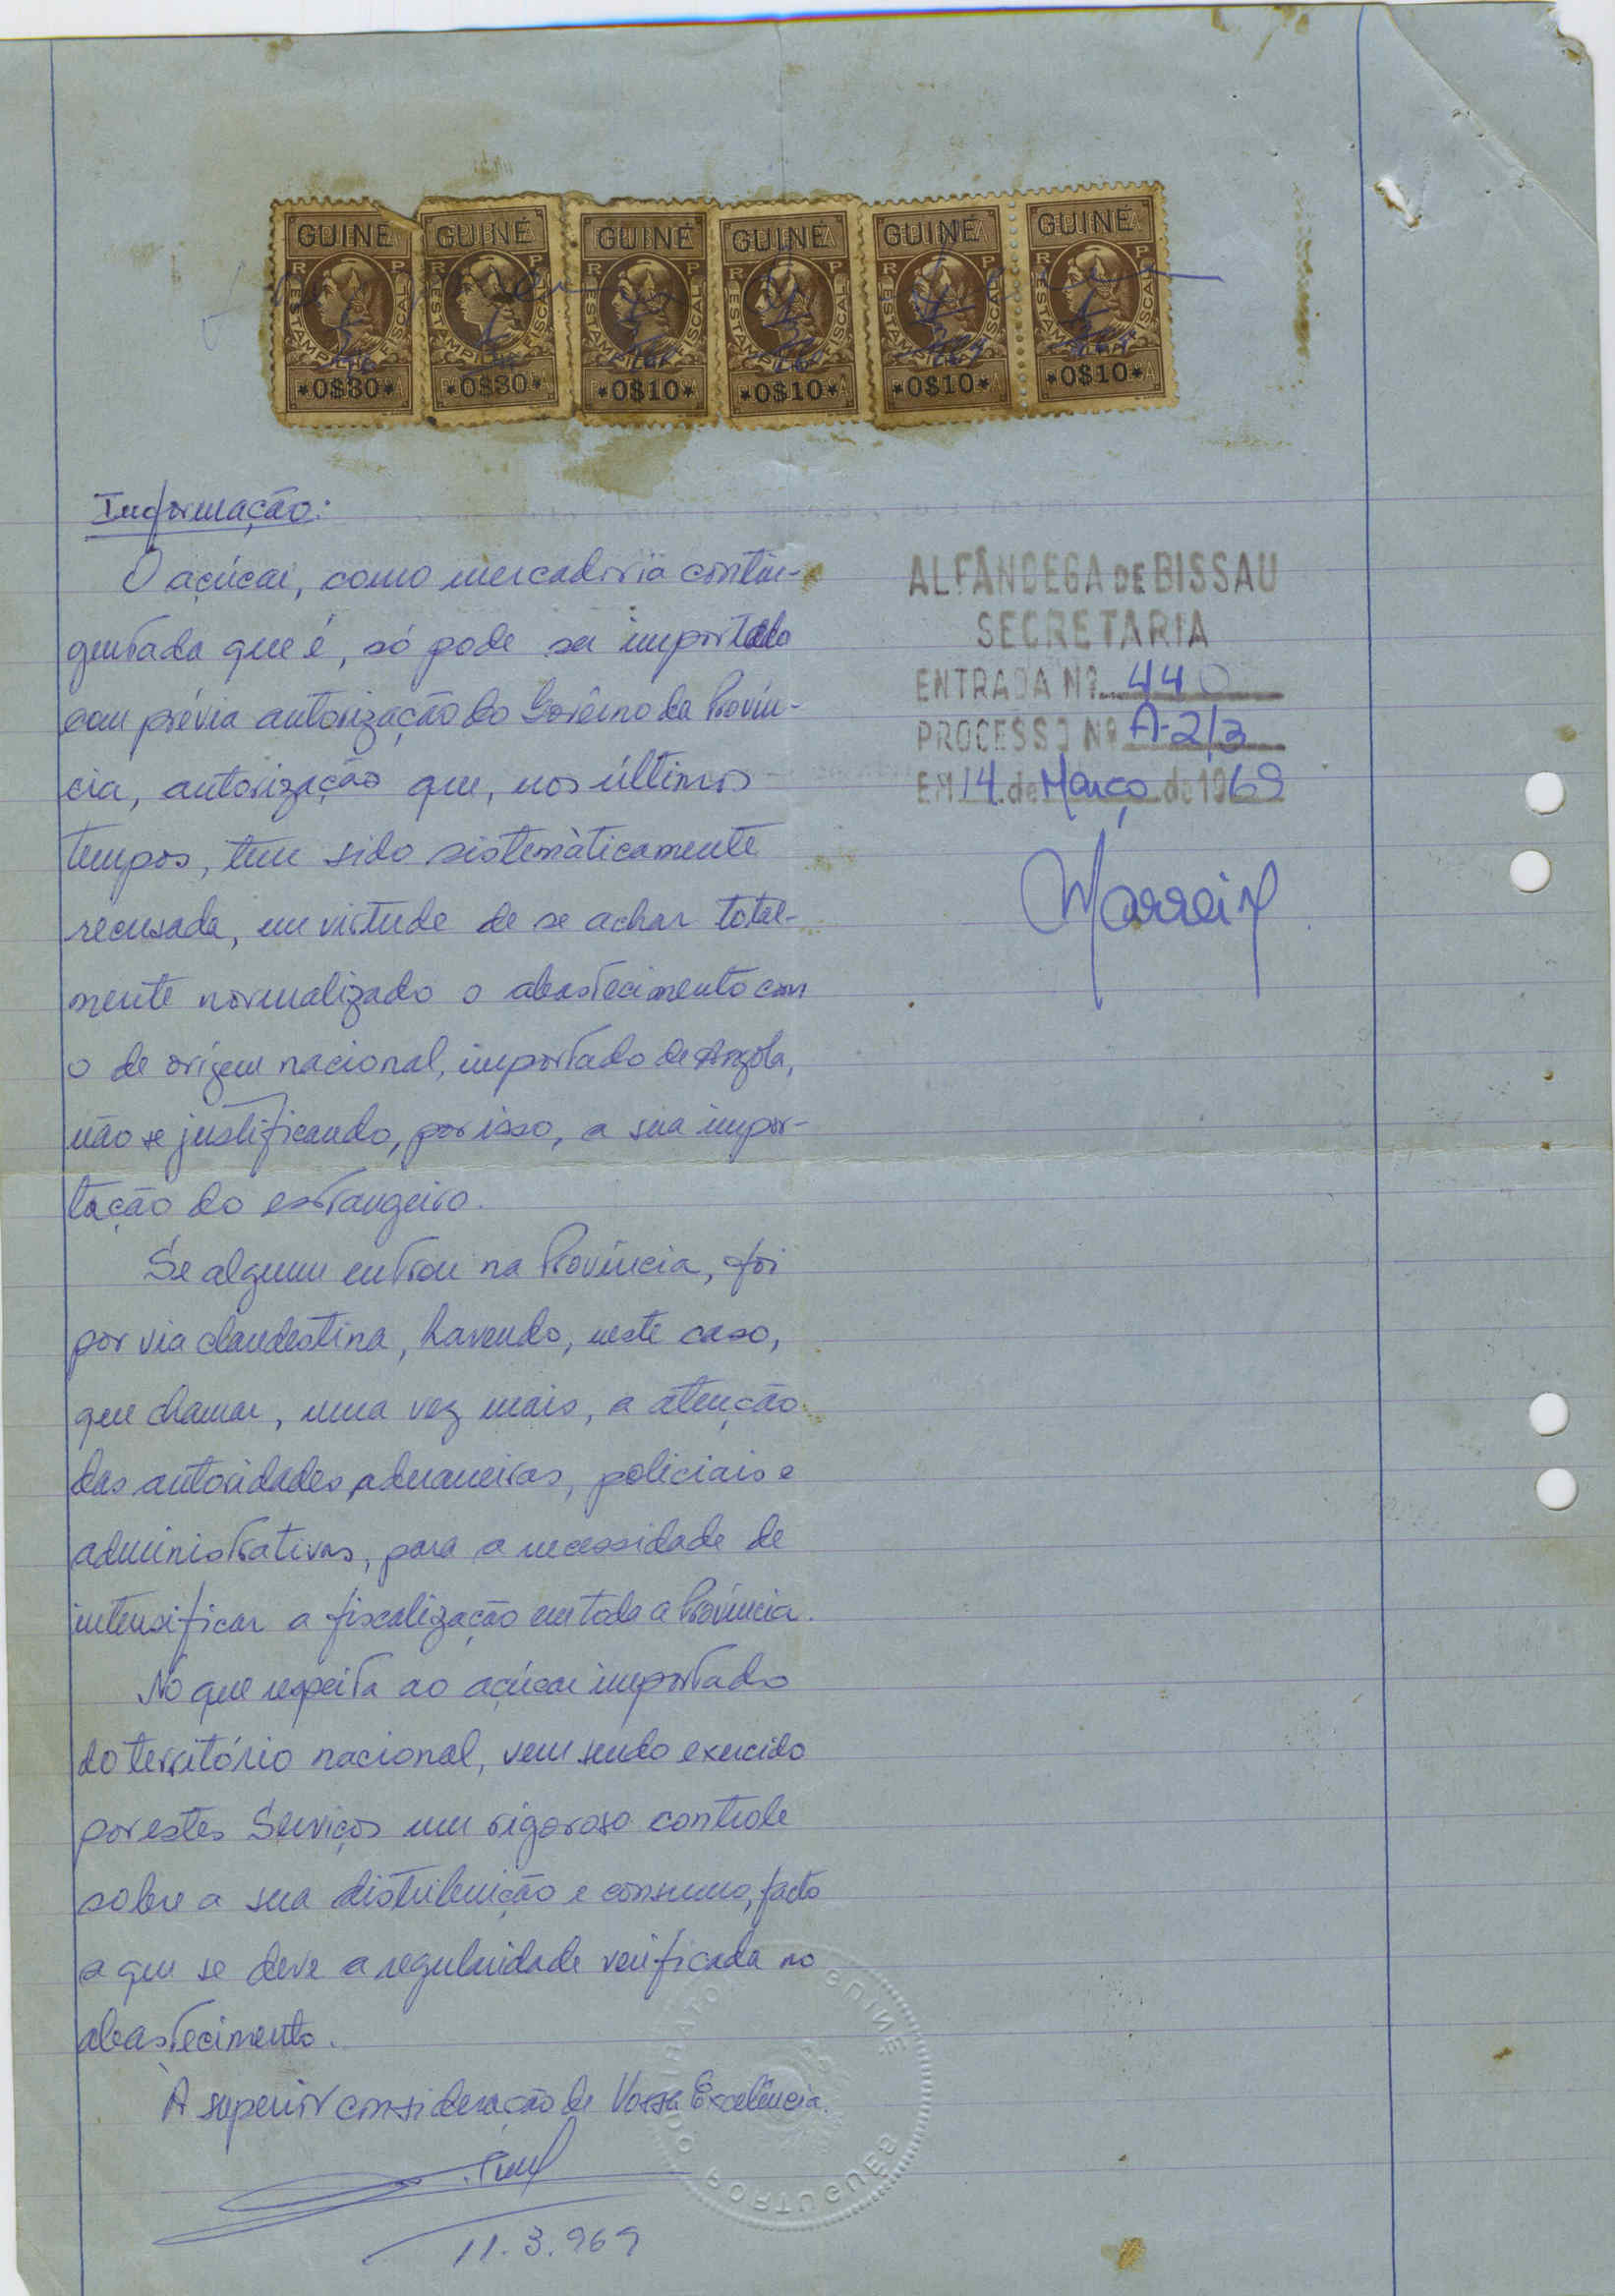 GUINÉ GUINÉ GUINÉ GUINÉ GUINÉ GUINÉ
R P R P R P R P R P R P
ESTAMPILHA FISCAL ESTAMPILHA FISCAL ESTAMPILHA FISCAL ESTAMPILHA FISCAL ESTAMPILHA FISCAL ESTAMPILHA FISCAL
*0$30* *0$30* *0$10* *0$10* *0$10* *0$10*
Informação:
O açúcar, como mercadoria contin-
gentada que é, só pode ser importado
com prévia autorização do Govêrno da Provín-
cia, autorização que, nos últimos
tempos, tem sido sistemàticamente
recusada, em virtude de se achar total-
mente normalizado o abastecimento com
o de origem nacional, importado de Angola,
não se justificando, por isso, a sua impor-
tação do estrangeiro.
Se algum entrou na Província, foi
por via clandestina, havendo, neste caso,
que chamar, uma vez mais, a atenção
das autoridades aduaneiras, policiais e
administrativas, para a necessidade de
intensificar a fiscalização em toda a Província.
No que respeita ao açúcar importado
do território nacional, vem sendo exercido
por estes Serviços um rigoroso controle
sobre a sua distribuição e consumo, facto
a que se deve a regularidade verificada no
abastecimento.
À superior consideração de Vossa Excelência.
11.3.969
ALFÂNDEGA DE BISSAU
SECRETARIA
ENTRADA Nº 440
PROCESSO Nº A-2/3
EM 14 de Março de 1969
GUINE
PORTUGUES